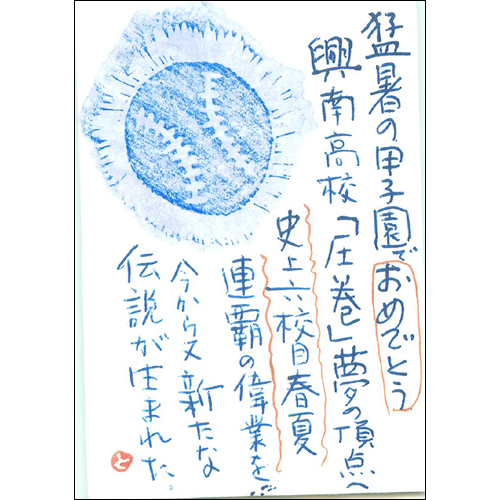 猛暑の甲子園でおめでとう
興南高校「圧巻」夢の頂点へ
史上六校目春夏
連覇の偉業を!!!
今から又新たな
伝説が生まれた。
と